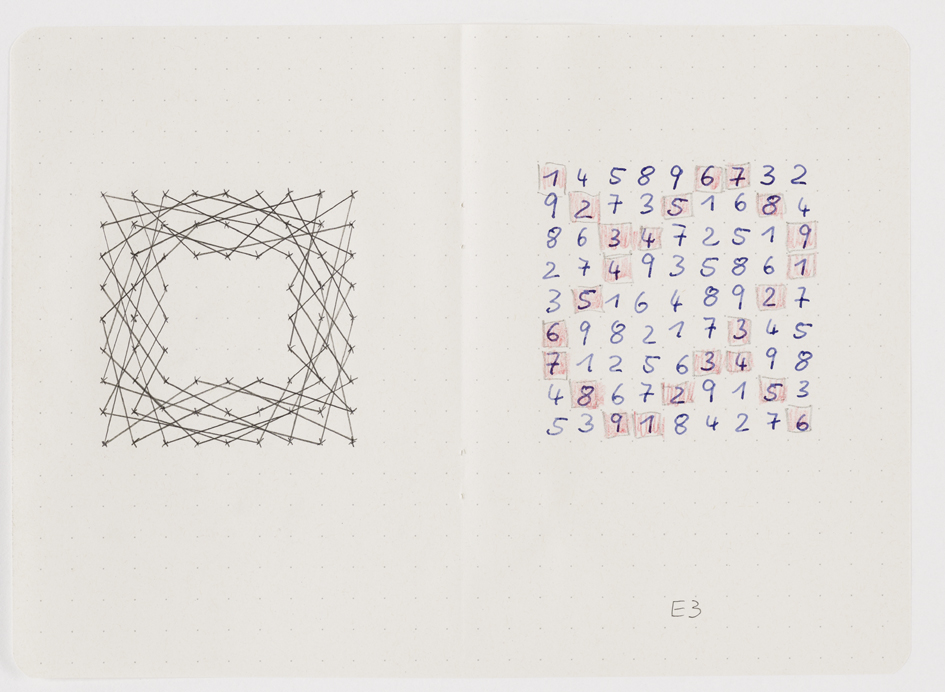 1 4 5 8 9 6 7 3 2
9 2 7 3 5 1 6 8 4
8 6 3 4 7 2 5 1 9
2 7 4 9 3 5 8 6 1
3 5 1 6 4 8 9 2 7
6 9 8 2 1 7 3 4 5
7 1 2 5 6 3 4 9 8
4 8 6 7 2 9 1 5 3
5 3 9 1 8 4 2 7 6
E3